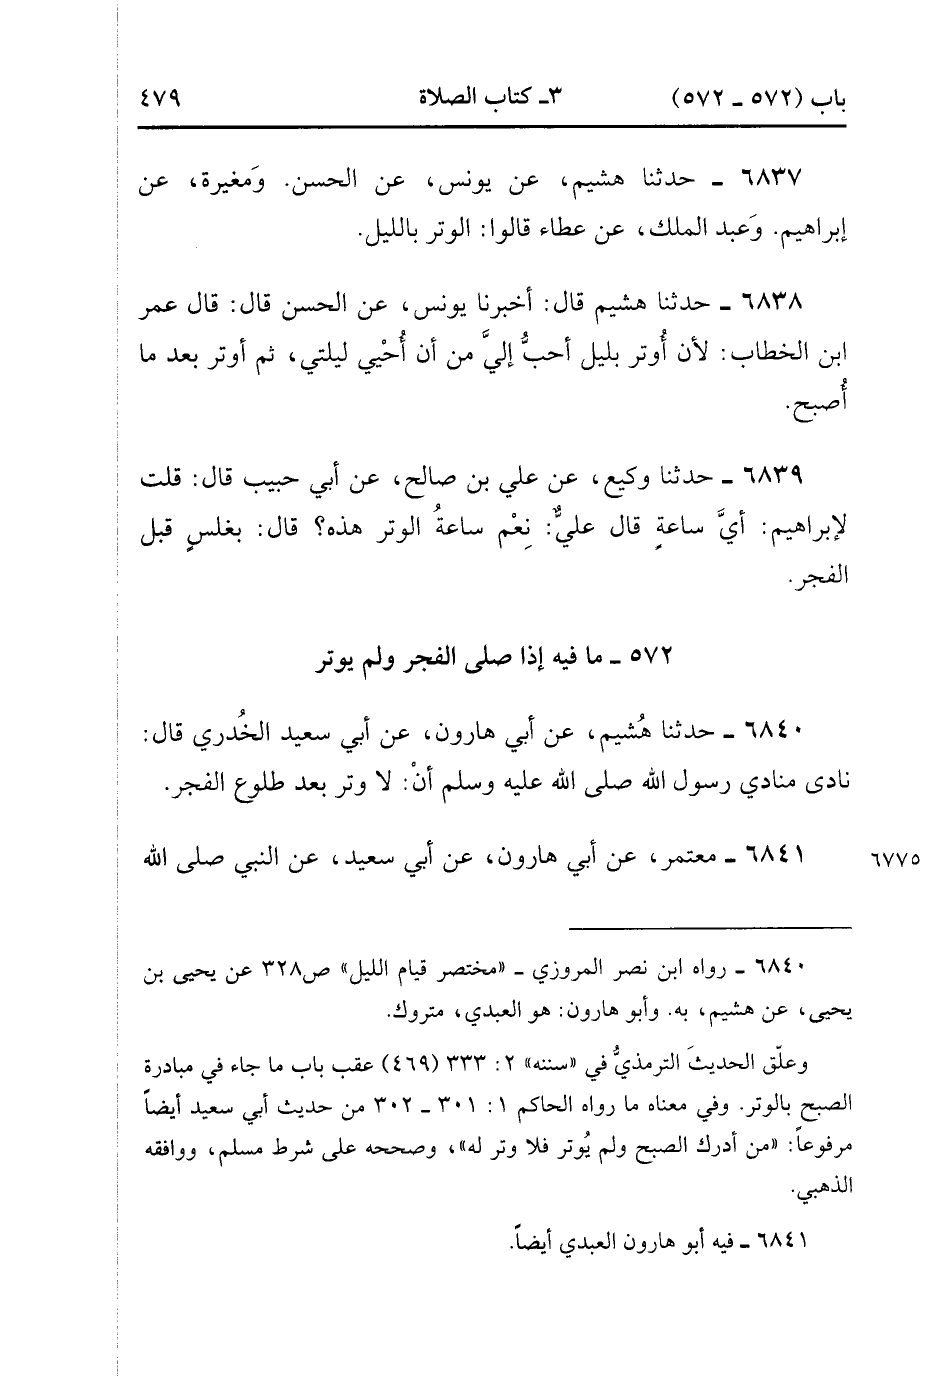 باب (٥٧٢ ـ ٥٧٢) ٣ـ كتاب الصلاة ٤٧٩
٦٨٣٧ ـ حدثنا هشيم، عن يونس، عن الحسن. وَمغيرة، عن
إبراهيم. وَعبد الملك، عن عطاء قالوا: الوتر بالليل.
٦٨٣٨ ـ حدثنا هشيم قال: أخبرنا يونس، عن الحسن قال: قال عمر
ابن الخطاب: لأن أُوتر بليل أحبُّ إليَّ من أن أُحْيي ليلتي، ثم أوتر بعد ما
أُصبح.
٦٨٣٩ ـ حدثنا وكيع، عن علي بن صالح، عن أبي حبيب قال: قلت
لإبراهيم: أيَّ ساعةٍ قال عليٌّ: نِعْم ساعةُ الوتر هذه؟ قال: بغلسٍ قبل
الفجر.
٥٧٢ ـ ما فيه إذا صلى الفجر ولم يوتر
٦٨٤٠ ـ حدثنا هُشيم، عن أبي هارون، عن أبي سعيد الخُدري قال:
نادى منادي رسول الله صلى الله عليه وسلم أنْ: لا وتر بعد طلوع الفجر.
٦٨٤١ ـ معتمر، عن أبي هارون، عن أبي سعيد، عن النبي صلى الله
٦٧٧٥
٦٨٤٠ ـ رواه ابن نصر المروزي ـ «مختصر قيام الليل» ص٣٢٨ عن يحيى بن
يحيى، عن هشيم، به. وأبو هارون: هو العبدي، متروك.
وعلّق الحديثَ الترمذيُّ في «سننه» ٢: ٣٣٣ (٤٦٩) عقب باب ما جاء في مبادرة
الصبح بالوتر. وفي معناه ما رواه الحاكم ١: ٣٠١ ـ ٣٠٢ من حديث أبي سعيد أيضاً
مرفوعاً: «من أدرك الصبح ولم يُوتر فلا وتر له»، وصححه على شرط مسلم، ووافقه
الذهبي.
٦٨٤١ ـ فيه أبو هارون العبدي أيضاً.